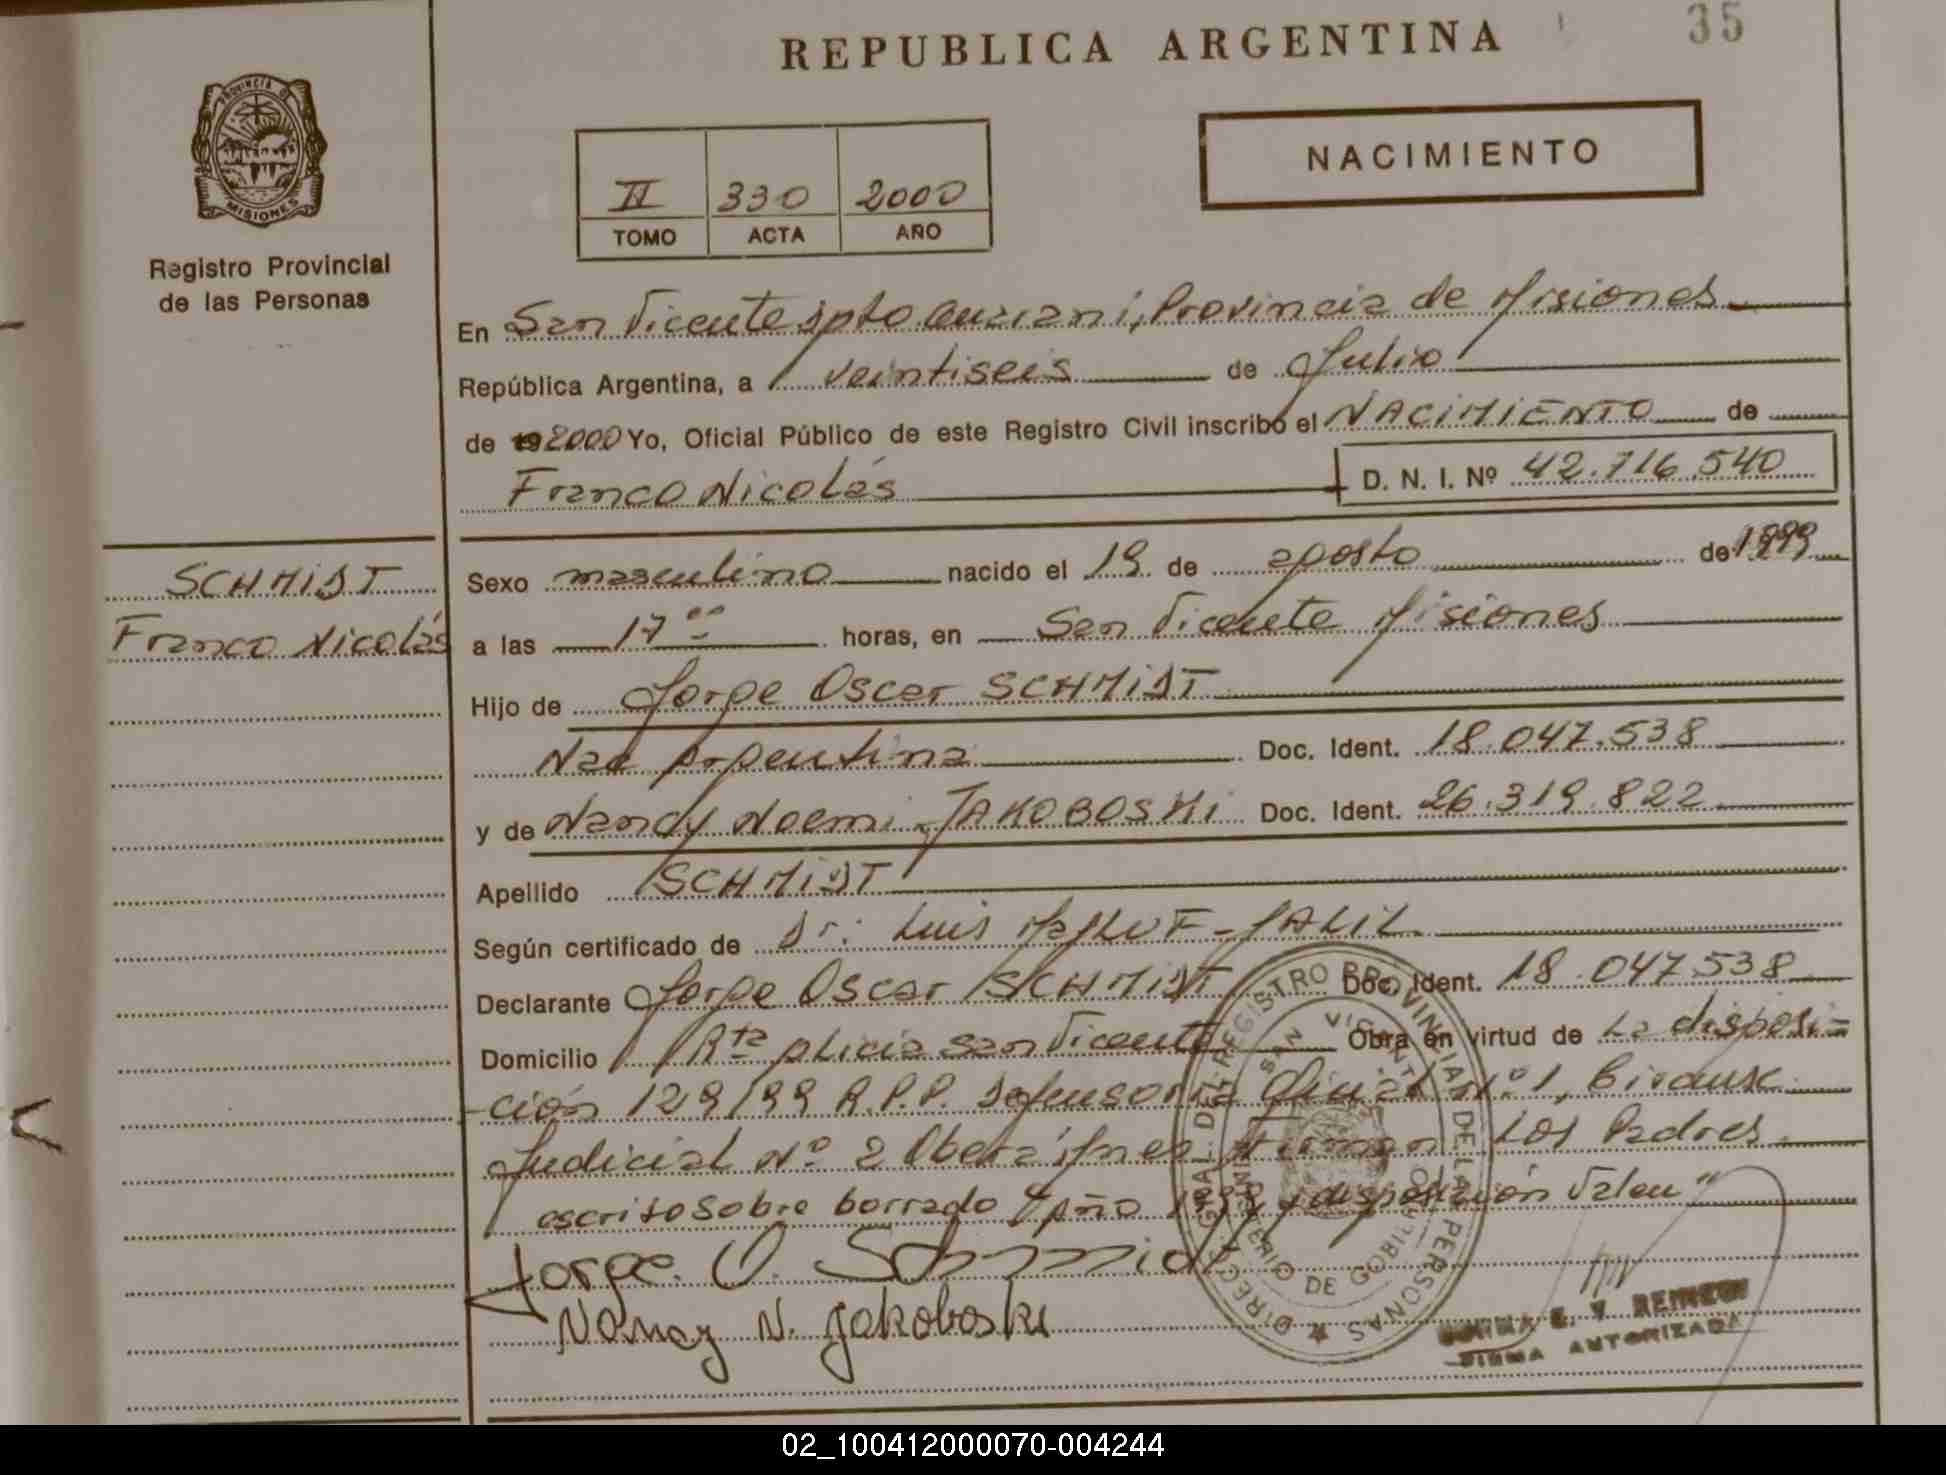 REPUBLICA ARGENTINA
35
PROVINCIA DE
MISIONES
Registro Provincial
de las Personas
II 330 2000
TOMO ACTA AÑO
NACIMIENTO
En San Vicente Dpto. Guarani, Provincia de Misiones
República Argentina, a veintiseis de Julio
de 2000 Yo, Oficial Público de este Registro Civil inscribo el NACIMIENTO de
Franco Nicolás D. N. I. Nº 42.716.540
SCHMIDT
Franco Nicolás
Sexo masculino nacido el 19 de agosto de 1999
a las 17 00 horas, en San Vicente Misiones
Hijo de Jorge Oscar SCHMIDT
Nac Argentina Doc. Ident. 18.047.538
y de Nancy Noemi JAKOBOSKi Doc. Ident. 26.319.822
Apellido SCHMIDT
Según certificado de Dr. Luis MaJLUF-JALIL
Declarante Jorge Oscar SCHMIDT Doc. Ident. 18.047.538
Domicilio Rta plicia San Vicente Obra en virtud de La disposi=
-ción 129/99 R.P.P. Defensoria Oficial Nº 1, Circunsc.
Judicial Nº 2 Oberá Mnes. Firman Los Padres
escrito sobre borrado "Año 1999 y disposición Valen"
Jorge. O. Schmidt
Nancy N. Jakoboski
DIRECC. GRAL. DEL REGISTRO PROVINCIAL DE LAS PERSONAS
SAN VICENTE
MINISTERIO DE GOBIERNO
NORMA E. V. REINZON
FIRMA AUTORIZADA
02_100412000070-004244